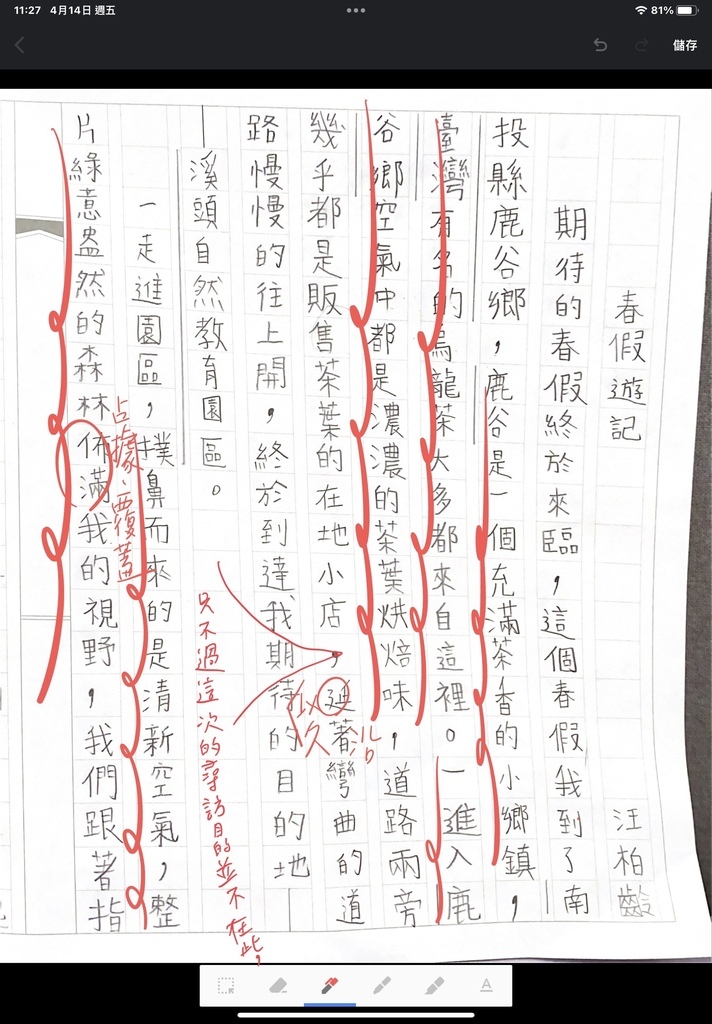 11:27 4月14日 週五
81%
儲存
春假遊記
汪柏齡
期待的春假終於來臨,這個春假我到了南
投縣鹿谷鄉,鹿谷是一個充滿茶香的小鄉鎮,
臺灣有名的烏龍茶大多都來自這裡。一進入鹿
谷鄉空氣中都是濃濃的茶葉烘焙味,道路兩旁
幾乎都是販售茶葉的在地小店,延著彎曲的道
路慢慢的往上開,終於到達我期待的目的地—
—溪頭自然教育園區。
一走進園區,撲鼻而來的是清新空氣,整
片綠意盎然的森林佈滿我的視野,我們跟著指
沿
只不過這次的尋訪目的並不在此,
占據、覆蓋
A